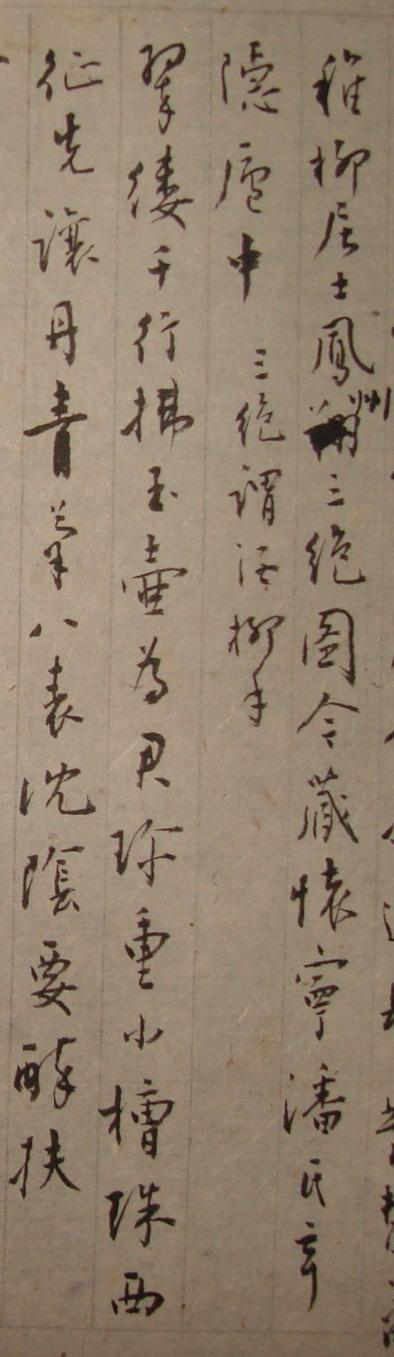 稚柳居士鳳州三絕圖今藏懷寧潘氏
隱廬中 三絕謂酒柳手
翠縷千行拂玉壺為君珍重小槽珠西
征先讓丹青筆八表沈陰要醉扶